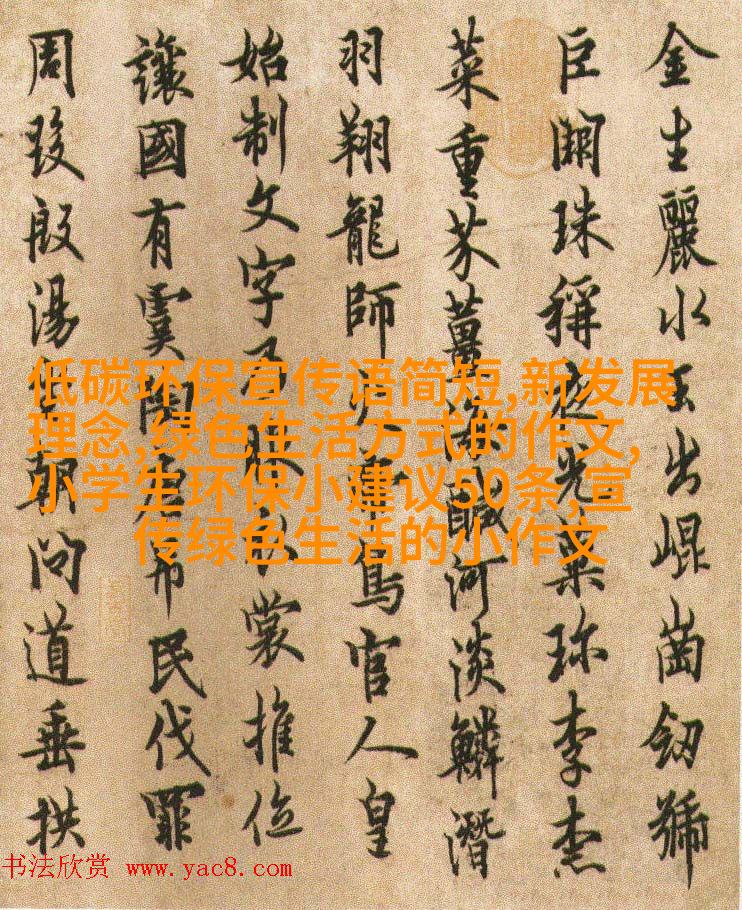 金生麗水玉出崐崗劒號
巨闕珠稱夜光菓珎李柰
菜重芥薑海鹹河淡鱗潛
羽翔龍師火帝鳥官人皇
始制文字乃服衣裳推位
讓國有虞陶唐吊民伐罪
周發殷湯坐朝問道垂拱
低碳环保宣传语简短,新发展
理念,绿色生活方式的作文,
小学生环保小建议50条,宣
传绿色生活的小作文
书法欣赏 www.yac8.com